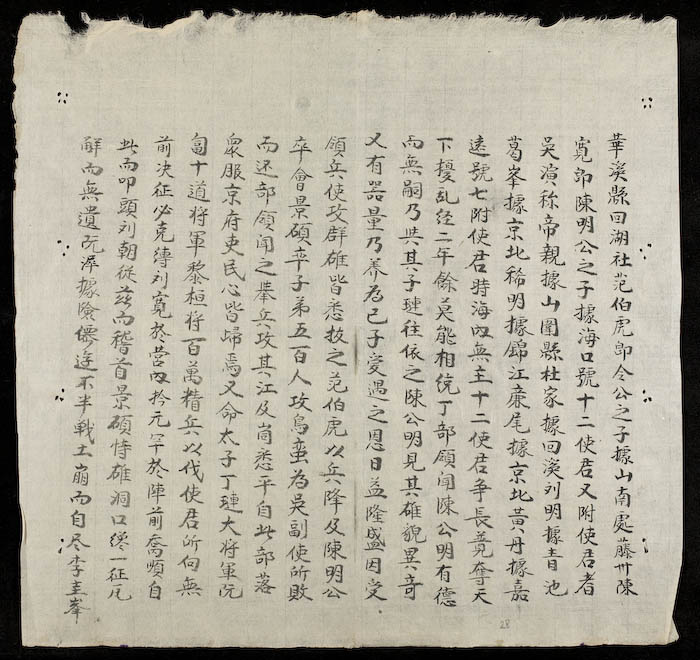 華溪縣回湖社范伯虎郎令公之子據山南處藤州陳
寬郎陳明公之子據海口號十二使君又附使君者
吳演称帝親據山圍縣杜家據回溪刘明據青池
葛峯據京北稀明據錦江廉尾據京北黃丹據嘉
遠號七附使君時海內無主十二使君爭長竟奪天
下擾乱经二年餘莫能相统丁部領聞陳公明有德
而無嗣乃與其子璉往依之陳公明見其雄貌異奇
又有器量乃养為己子愛遇之恩日益隆盛因受
領兵使攻群雄皆悉拔之范伯虎以兵降及陳明公
卒會景碩卒子弟五百人攻烏蛮為吳副使所敗
而还部領闻之舉兵攻其江及峝悉平自此部落
衆服京府吏民心皆歸焉又命太子丁璉大将軍阮
匐十道将軍黎桓将百萬精兵以伐使君所向無
前决征必克縳刘寬於营內拎元罕於陣前喬順自
此而叩頭刘朝從兹而稽首景碩恃雄洞口纔一征凢
觧而無遺阮滐據險僊逰不半戦土崩而自尽李圭峯
28